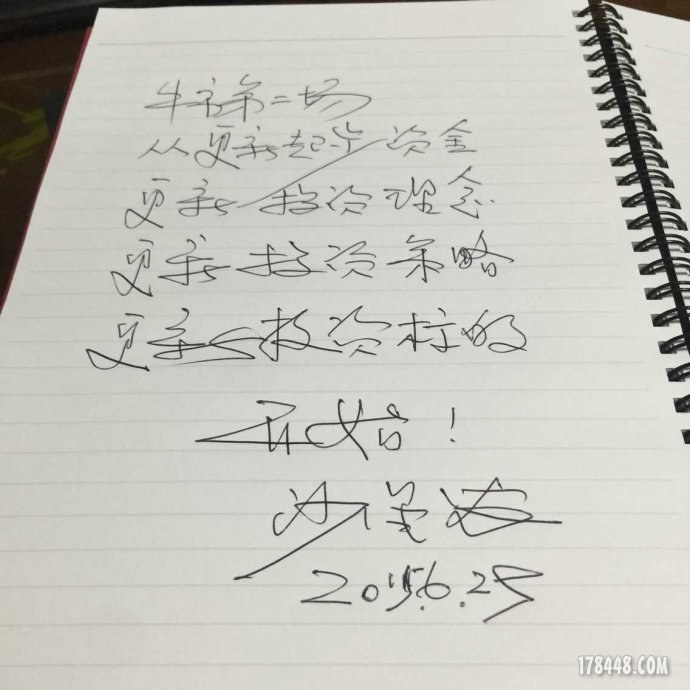 牛市第二场
从更新起步资金
更新投资理念
更新投资策略
更新投资标的
开始!
2015.6.25
178448.COM